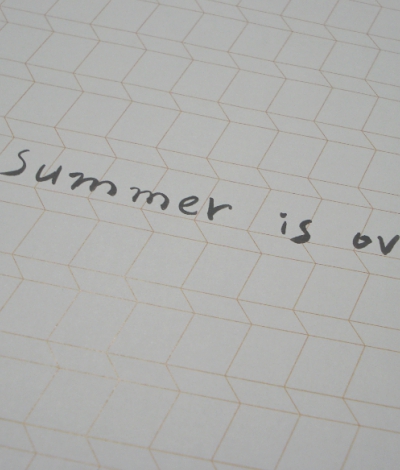 summer is ov